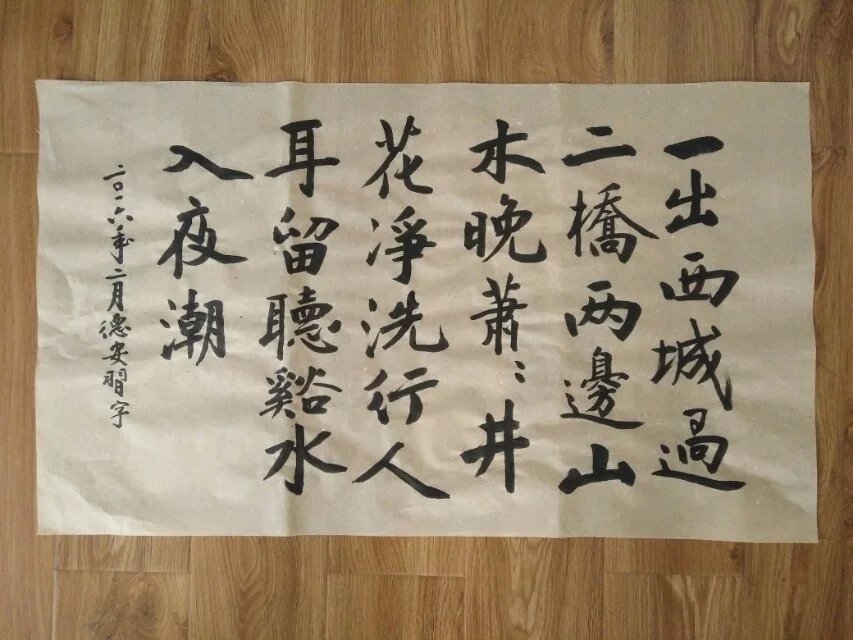 一出西城過
二橋两邊山
木晚萧〻井
花淨洗行人
耳留聽谿水
入夜潮
二〇一六年二月德安習字